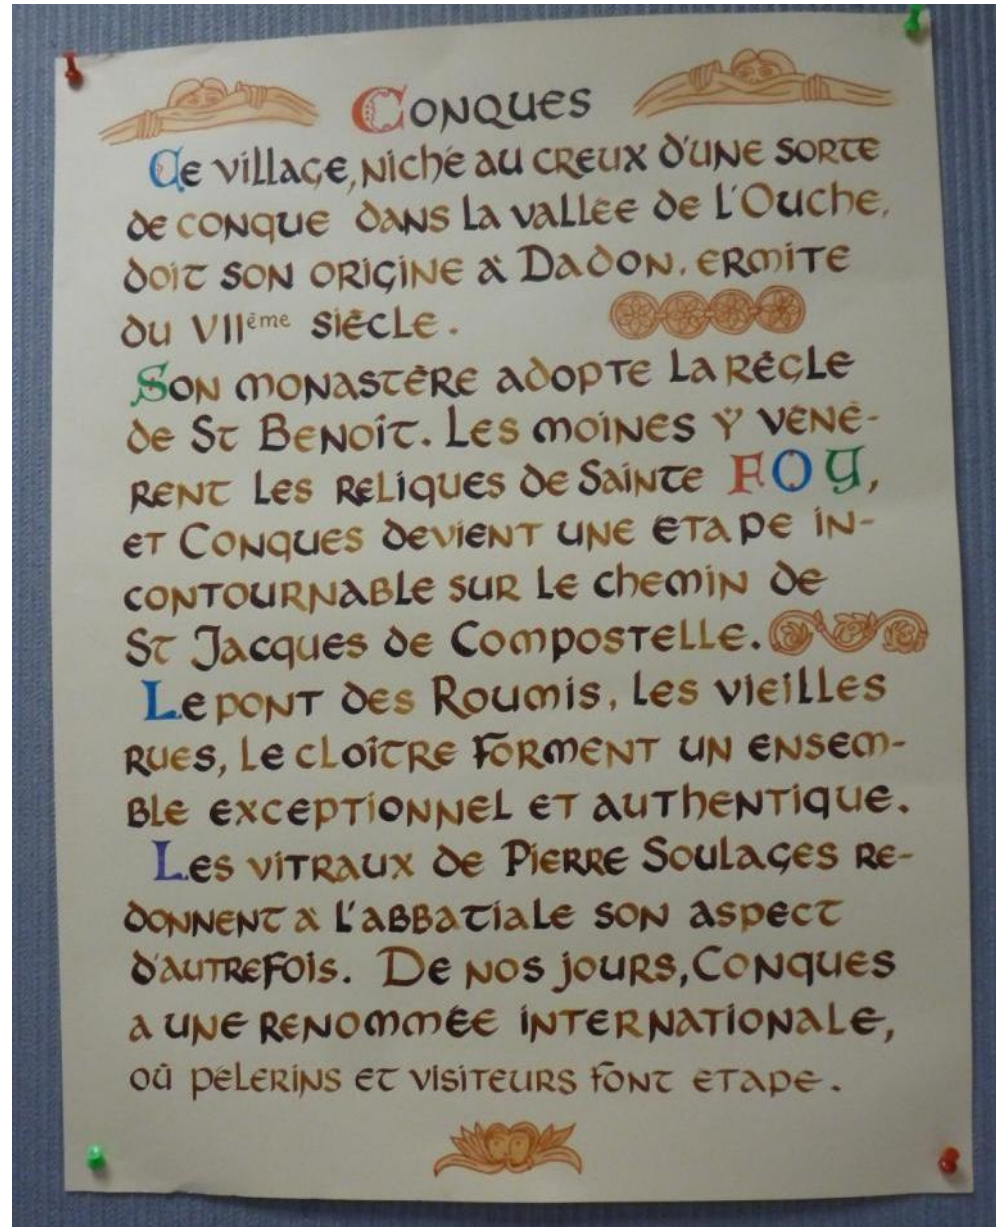 Conques
Ce village, niché au creux d'une sorte
de conque dans la vallée de l'Ouche,
doit son origine à Dadon, ermite
du VIIème siècle.
Son monastère adopte la règle
de St Benoît. Les moines y vénè-
rent les reliques de Sainte FOY,
et Conques devient une étape in-
contournable sur le chemin de
St Jacques de Compostelle.
Le pont des Roumis, les vieilles
rues, le cloître forment un ensem-
ble exceptionnel et authentique.
Les vitraux de Pierre Soulages re-
donnent à l'abbatiale son aspect
d'autrefois. De nos jours, Conques
a une renommée internationale,
où pèlerins et visiteurs font étape.